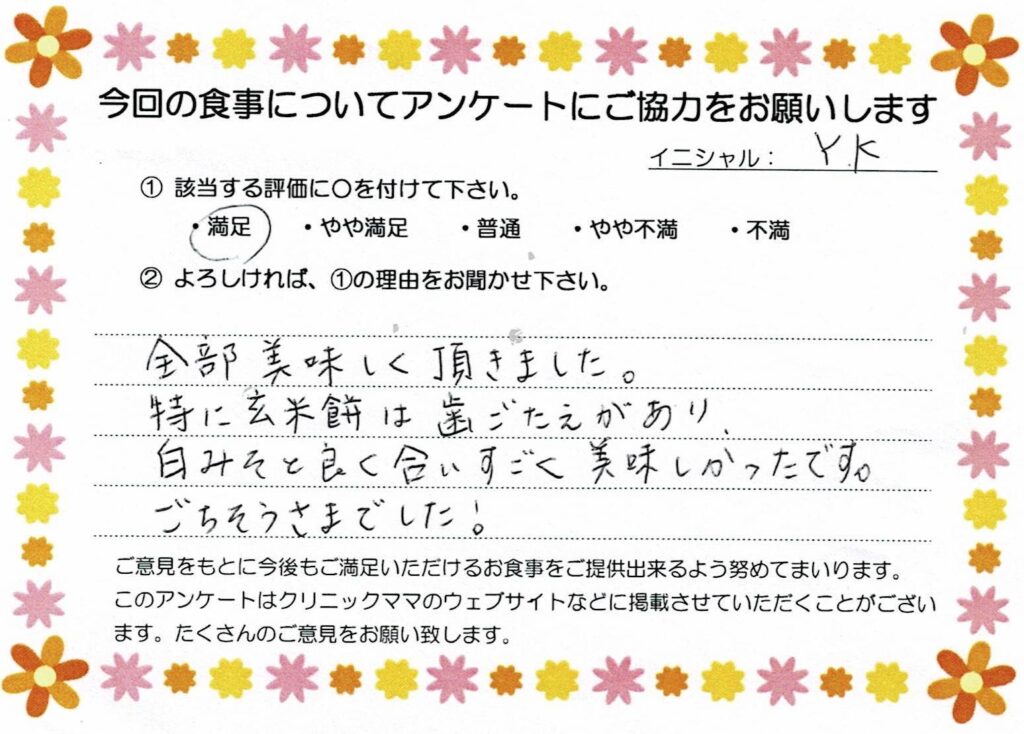 今回の食事についてアンケートにご協力をお願いします
イニシャル： Y.K
① 該当する評価に〇を付けて下さい。
・満足 ・やや満足 ・普通 ・やや不満 ・不満
② よろしければ、①の理由をお聞かせ下さい。
全部美味しく頂きました。
特に玄米餅は歯ごたえがあり、
白みそと良く合いすごく美味しかったです。
ごちそうさまでした！
ご意見をもとに今後もご満足いただけるお食事をご提供出来るよう努めてまいります。
このアンケートはクリニックママのウェブサイトなどに掲載させていただくことがござい
ます。たくさんのご意見をお願い致します。